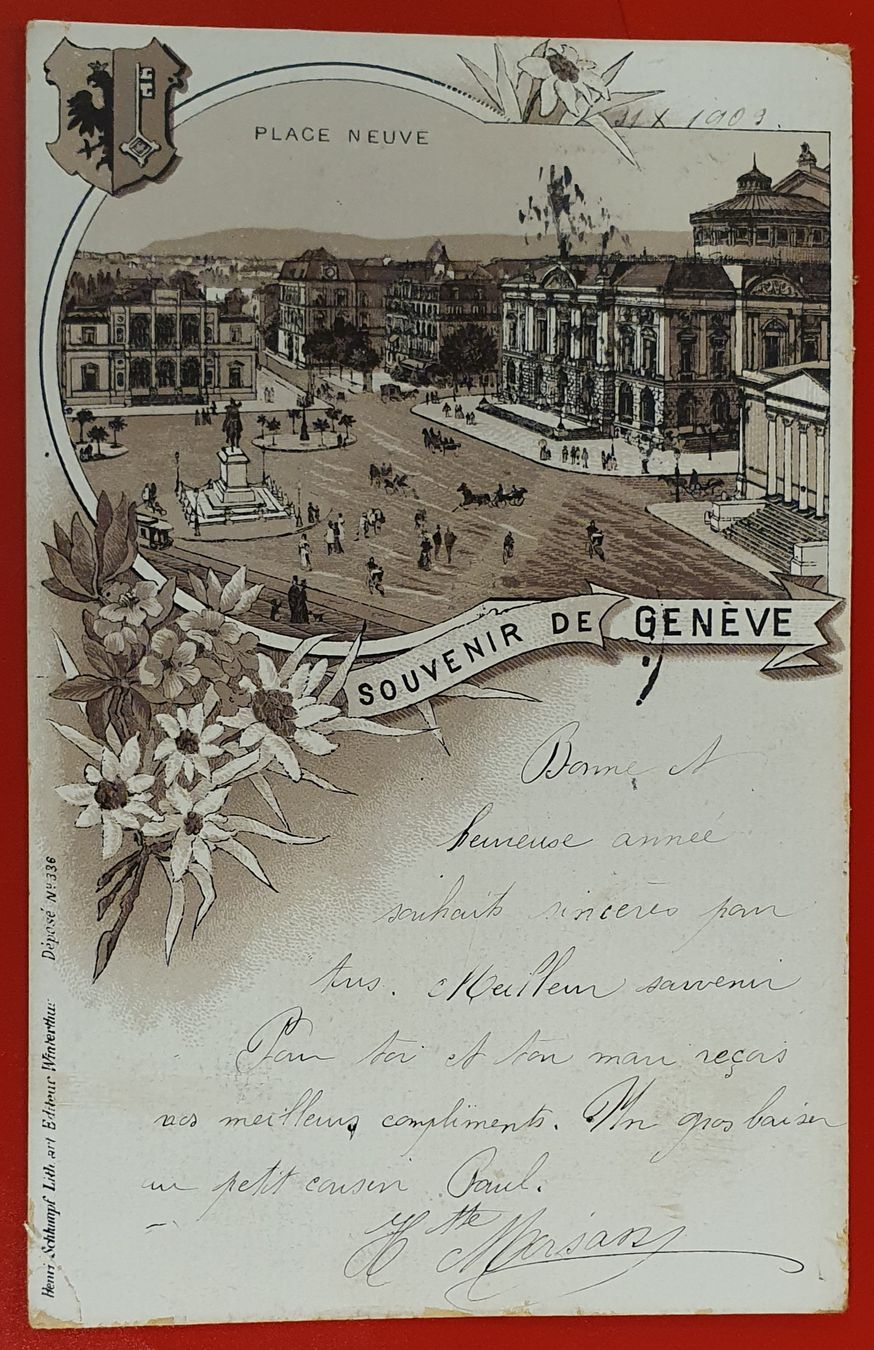 PLACE NEUVE
X 1903.
SOUVENIR DE GENÈVE
Bonne et
heureuse année
souhaits sincères pour
tus. Meilleur souvenir
Pour toi et ton mari reçois
vos meilleurs compliments. Un gros baiser
au petit cousin Paul.
H^tte
Henri Schlumpf Lith. art Editeur Winterthur Déposé Nº 336